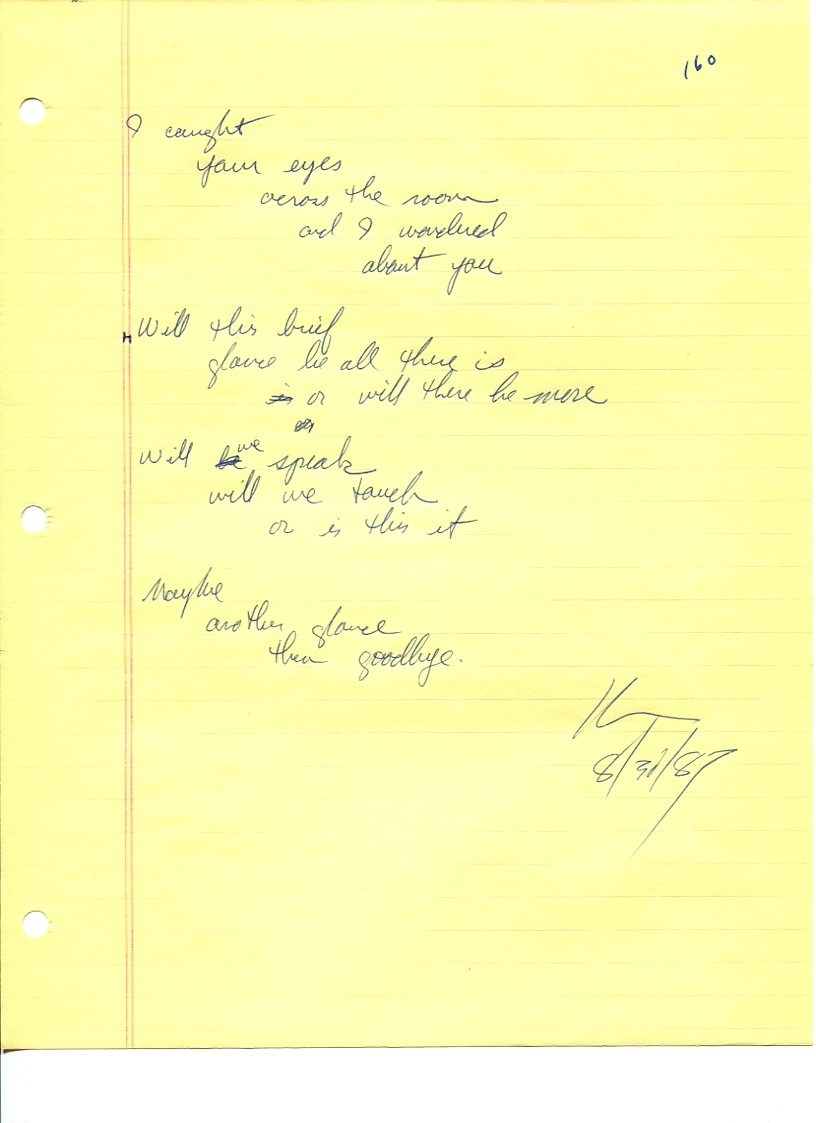 160
I caught
your eyes
across the room
and I wondered
about you
Will this brief
glance be all there is
or will there be more
Will we speak
will we touch
or is this it
Maybe
another glance
then goodbye.